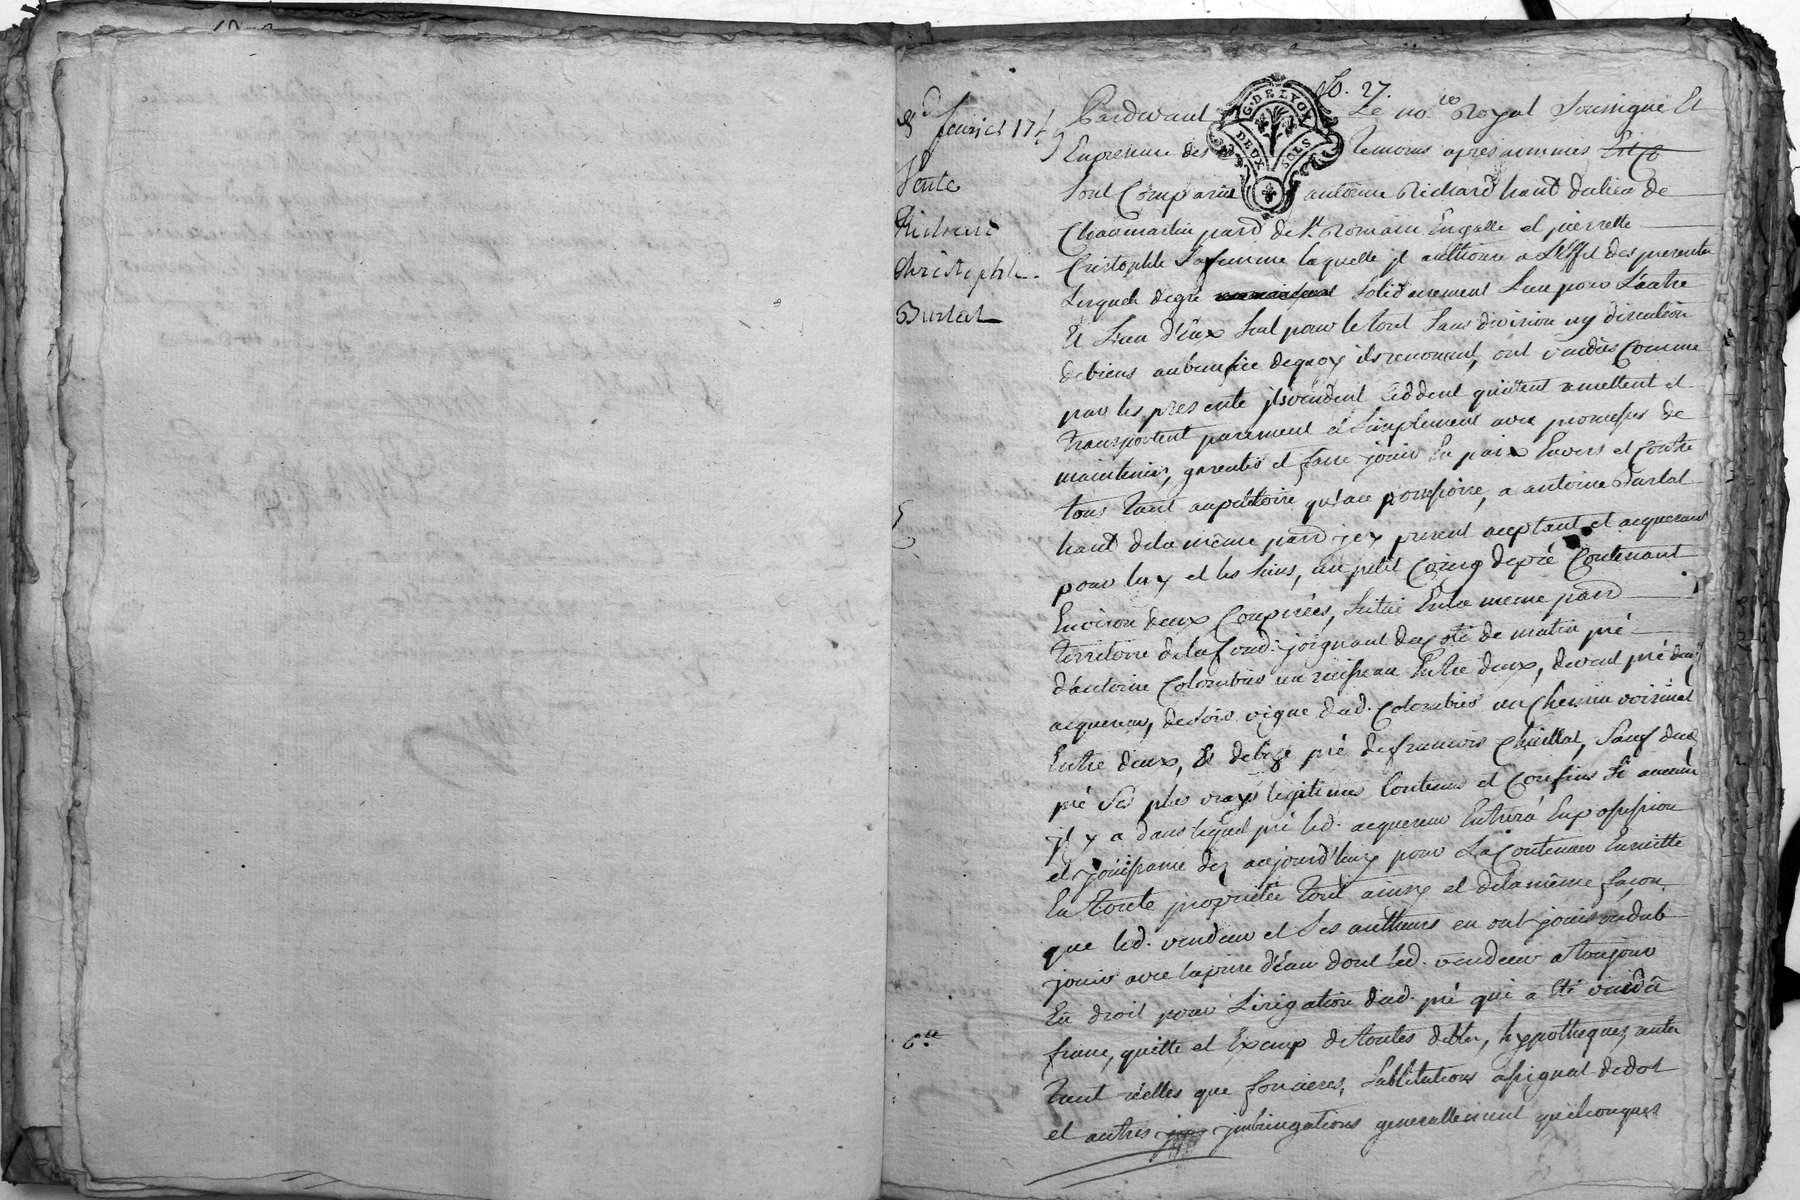 fo. 27.
8 fevrier 174
Vente
Richard
Christophle
Burlat
G. DE LYON
DEUX SOLS
Pardevant Le no.re Royal Soussigné Et
En presence des temoins apres nommés
sont Comparus antoine Richard habt du lieu de
Chaumartin parr de St Romain En galle et pierrette
Cristophle Sa femme laquelle il authorise a L'effet des presentes
Lesquels de gré solidairement L'un pour L'autre
Et L'un d'Eux seul pour le tout sans division ny discution
de biens au benefice de quoy ils renoncent, ont vendus Comme
par les presente ils vendent Ceddent quittent remettent et
transportent purement et simplement avec promesses de
maintenir, garentir et faire jouir En paix Envers et Contre
tous tant au petitoire qu'au possessoire, a antoine Burlat
habt de la même parr icy present aceptant et acquereur
pour luy et les siens, un petit Coing de pré Contenant
Environ deux Coupées, situé En la meme parr
territoire de lafond. joignant du Coté de matin pré
d'antoine Colombier un ruisseau Entre deux, de vent pré dud.
acquereur, de soir vigne dud. Colombier un Chemin voisinal
Entre deux, Et de bize pré de francois Chuillat, Sauf dud.
pré Ses plus vrays legitimes Contenus et Confins Si aucuns
il y a dans lequel pré led. acquereur Entrera En possession
et jouissance dez aujourd'huy pour La Contenance
En toute proprietée tout ainsy et de la même façon
que led. vendeur et Ses autheurs en ont jouis ou dub
jouir avec la prise d'Eau dont led. vendeur a toujour
Eu droit pour L'irigation dud. pré qui a Eté vendû
franc, quitte et Exemp de toutes debtes, hypotheques, rentes
tant réelles que foncieres, Substitutions assignat de dot
et autres imbringations generallement quelconques